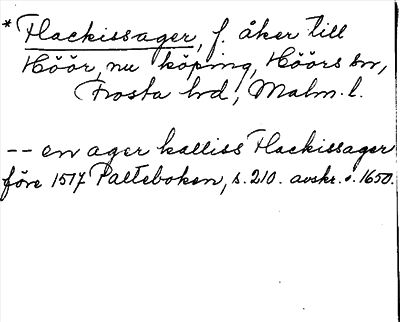 * Flackissager, f. åker till
Höör, nu köping, Höörs sn,
Frosta hd, Malm. l.
-- en ager kalliss Flackissager
före 1517 Palteboken, s. 210. avskr. o. 1650.